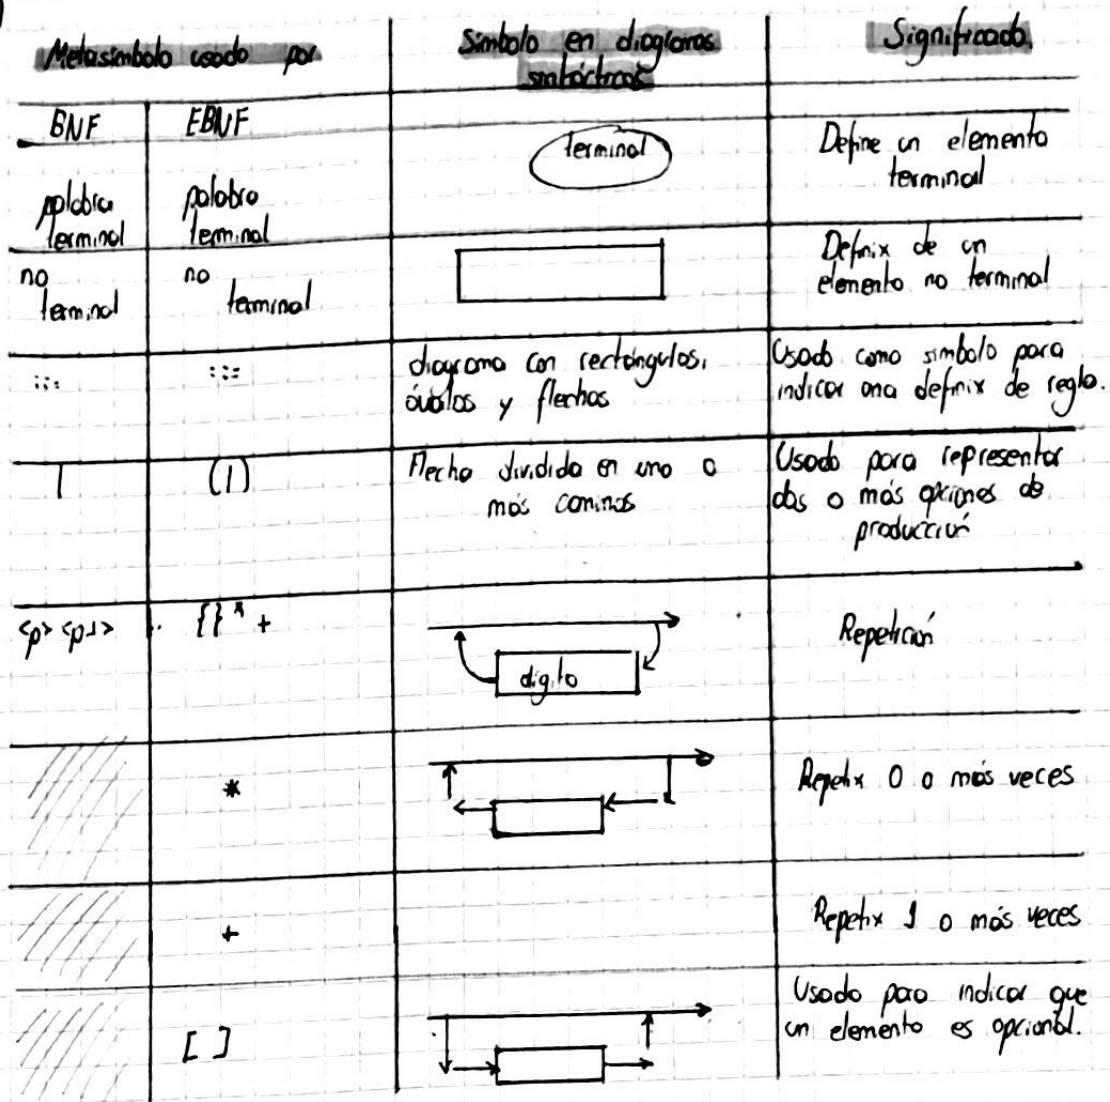 Metasímbolo usado por
Símbolo en diagramas
sintácticos
Significado
BNF
EBNF
palabra
terminal
palabra
terminal
terminal
Define un elemento
terminal
no
terminal
no
terminal
Definix de un
elemento no terminal
::=
::=
diagrama con rectángulos,
óvalos y flechas
Usado como símbolo para
indicar una definix de regla.
|
(|)
Flecha dividida en uno o
más caminos
Usado para representar
dos o más opciones de
producción
<p> <p1>
{ } * +
dígito
Repetición
*
Repetix 0 o más veces
+
Repetix 1 o más veces
[ ]
Usado para indicar que
un elemento es opcional.